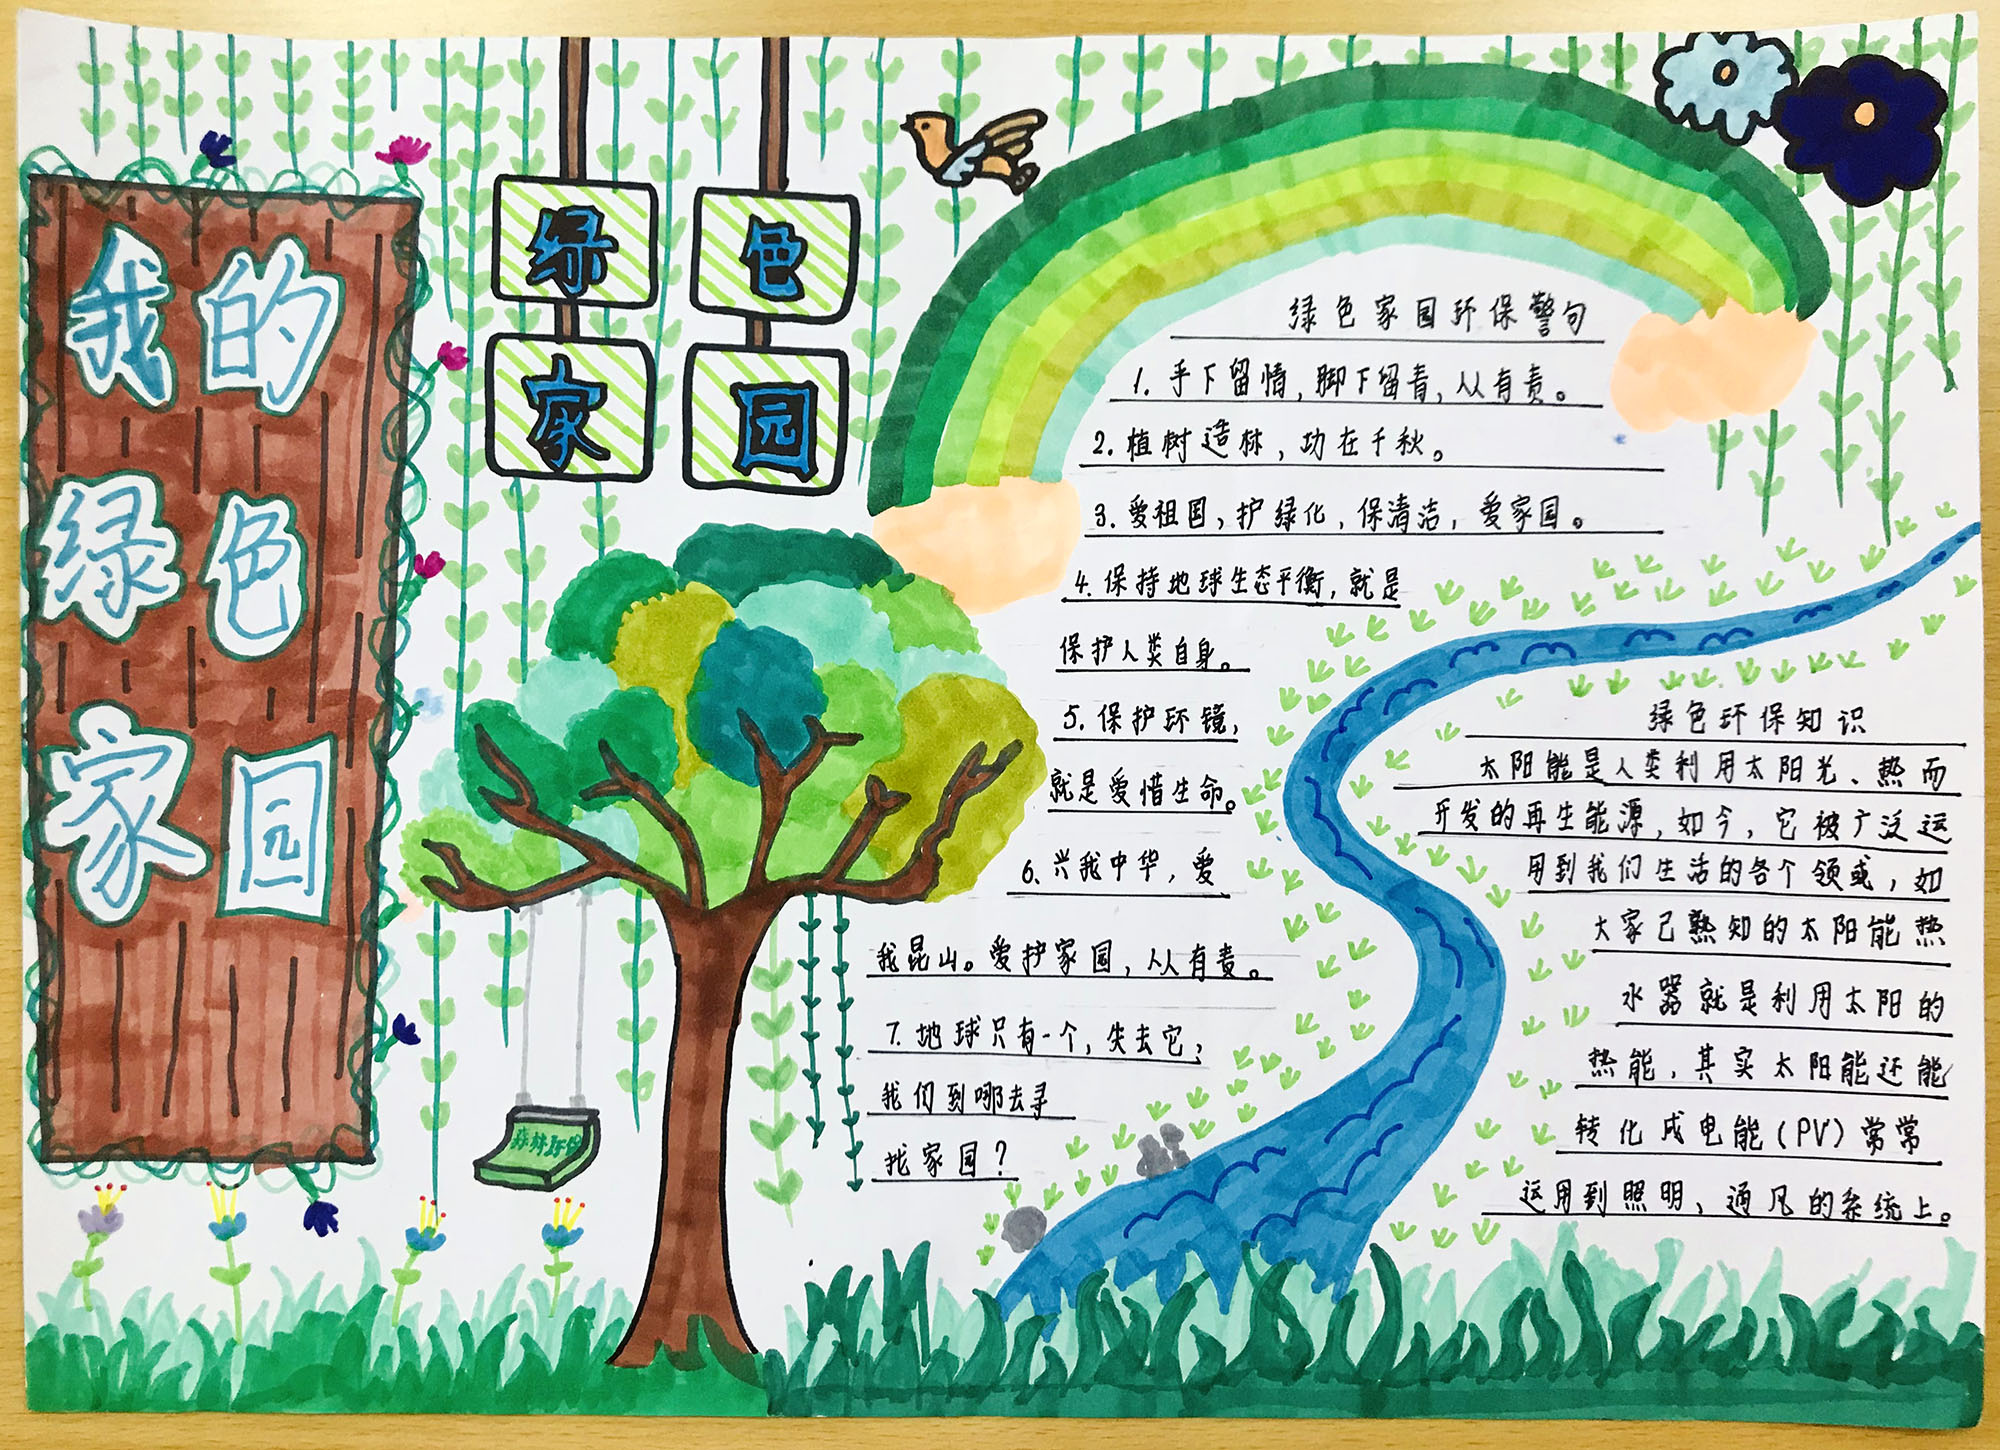 我的
绿色
家园
绿色
家园
森林环保
绿色家园环保警句
1. 手下留情，脚下留青，从有责。
2. 植树造林，功在千秋。
3. 爱祖国，护绿化，保清洁，爱家园。
4. 保持地球生态平衡，就是
保护人类自身。
5. 保护环镜，
就是爱惜生命。
6. 兴我中华，爱
我昆山。爱护家园，人人有责。
7. 地球只有一个，失去它，
我们到哪去寻
找家园？
绿色环保知识
太阳能是人类利用太阳光、热而
开发的再生能源，如今，它被广泛运
用到我们生活的各个领或，如
大家已熟知的太阳能热
水器就是利用太阳的
热能，其实太阳能还能
转化成电能(PV)常常
运用到照明、通风的系统上。